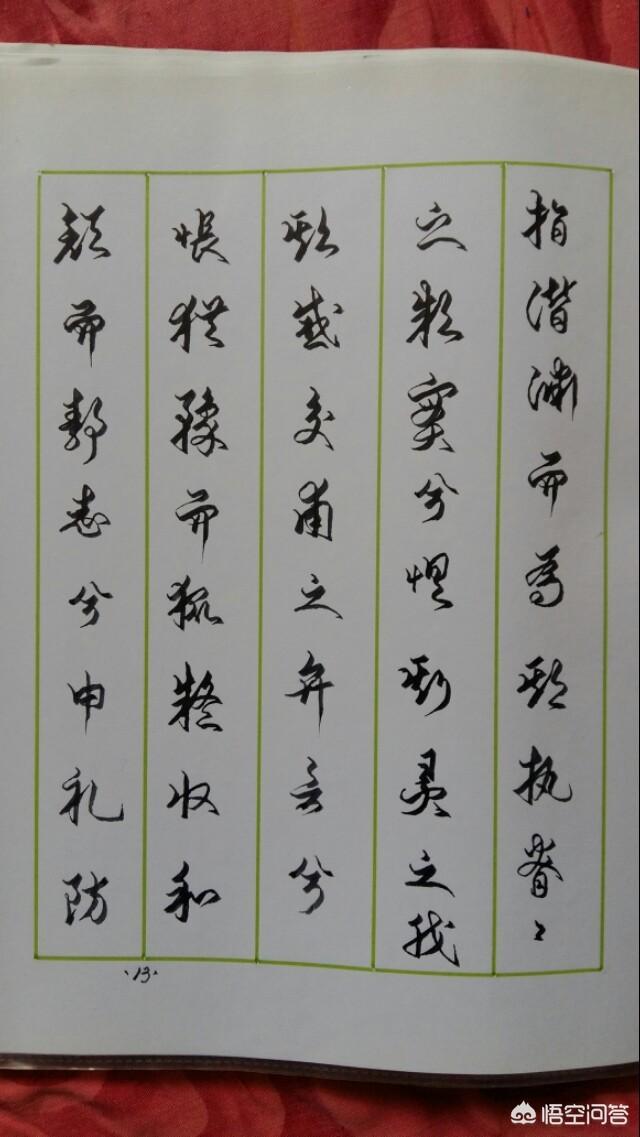 指潜渊而为期执眷々
之款实兮惧斯灵之我
欺感交甫之弃言兮
怅犹豫而狐疑收和
颜而静志兮申礼防
·13·
悟空问答